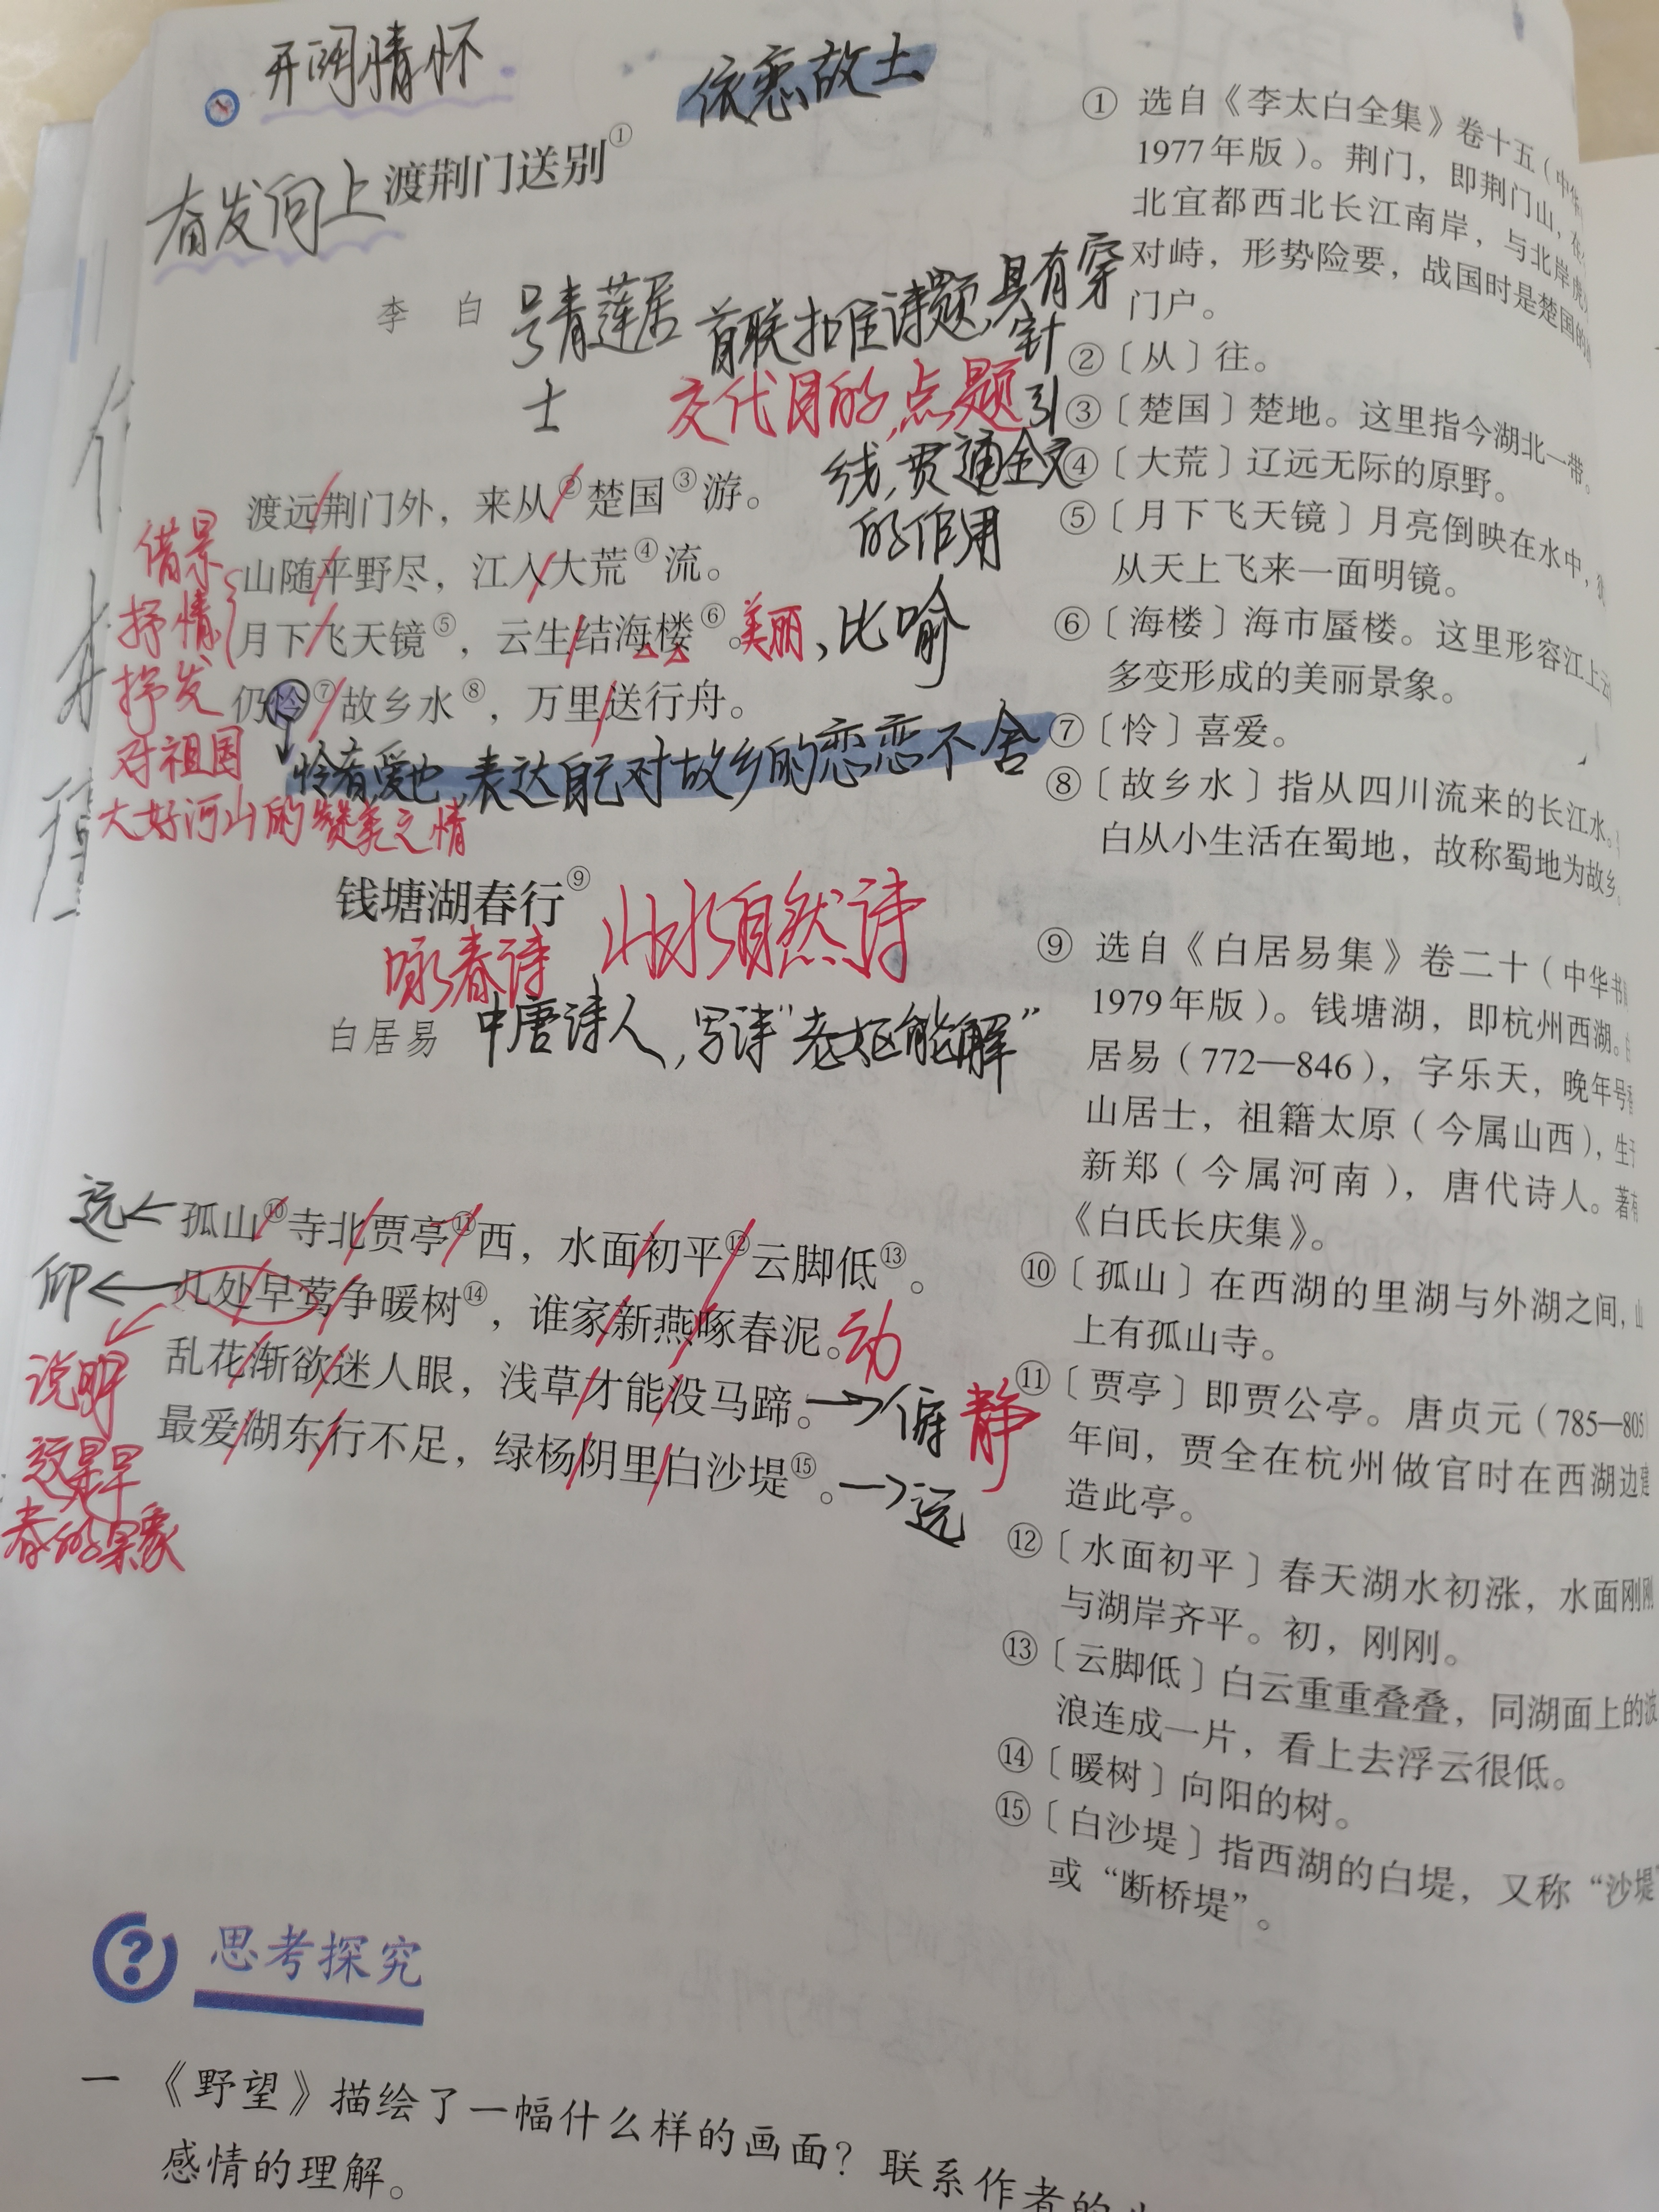 开阔情怀
依恋故土
奋发向上
渡荆门送别①
李 白
号青莲居
士
首联扣住诗题,具有穿
针
引
线,贯通全文
的作用
交代目的,点题
渡远荆门外，来从②楚国③游。
山随平野尽，江入大荒④流。
月下飞天镜⑤，云生结海楼⑥。
美丽,比喻
仍怜⑦故乡水⑧，万里送行舟。
借景
抒情
抒发
对祖国
大好河山的赞美之情
表达自己对故乡的恋恋不舍
钱塘湖春行⑨
山水自然诗
咏春诗
白居易
中唐诗人,写诗“老妪能解”
远←
孤山⑩寺北贾亭⑪西，水面初平⑫云脚低⑬。
仰←
几处早莺争暖树⑭，谁家新燕啄春泥。
动
乱花渐欲迷人眼，浅草才能没马蹄。
→俯 静
最爱湖东行不足，绿杨阴里白沙堤⑮。
→远
说明
这是早
春的景象
① 选自《李太白全集》卷十五（中华
1977年版）。荆门，即荆门山，在
北宜都西北长江南岸，与北岸虎
对峙，形势险要，战国时是楚国的
门户。
②〔从〕往。
③〔楚国〕楚地。这里指今湖北一带。
④〔大荒〕辽远无际的原野。
⑤〔月下飞天镜〕月亮倒映在水中，犹
从天上飞来一面明镜。
⑥〔海楼〕海市蜃楼。这里形容江上云
多变形成的美丽景象。
⑦〔怜〕喜爱。
⑧〔故乡水〕指从四川流来的长江水。
白从小生活在蜀地，故称蜀地为故乡。
⑨ 选自《白居易集》卷二十（中华书
1979年版）。钱塘湖，即杭州西湖。白
居易（772—846），字乐天，晚年号香
山居士，祖籍太原（今属山西），生于
新郑（今属河南），唐代诗人。著有
《白氏长庆集》。
⑩〔孤山〕在西湖的里湖与外湖之间，山
上有孤山寺。
⑪〔贾亭〕即贾公亭。唐贞元（785—805）
年间，贾全在杭州做官时在西湖边建
造此亭。
⑫〔水面初平〕春天湖水初涨，水面刚刚
与湖岸齐平。初，刚刚。
⑬〔云脚低〕白云重重叠叠，同湖面上的波
浪连成一片，看上去浮云很低。
⑭〔暖树〕向阳的树。
⑮〔白沙堤〕指西湖的白堤，又称“沙堤”
或“断桥堤”。
思考探究
一 《野望》描绘了一幅什么样的画面？联系作者的
感情的理解。